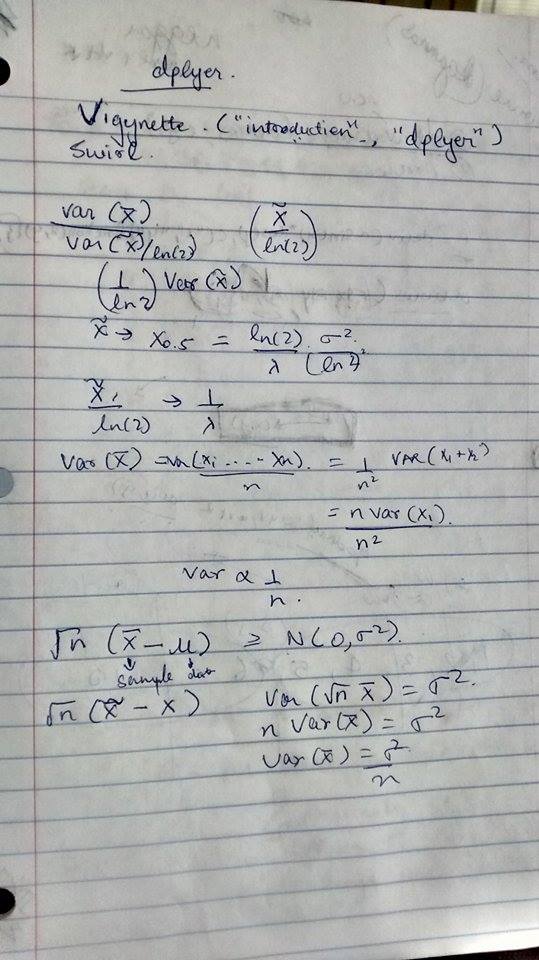 dplyer.
Vigynette. ("introduction", "dplyer")
Swirl.
var (x̄) / var (x̃)/ln(2)   (x̃ / ln(2))
(1 / ln 2) Var (x̃)
x̃ → x0.5 = ln(2) / λ . σ² / (ln 2)²
x̃ / ln(2) → 1 / λ
Var (x̄) = var (x1 .... xn) / n = 1 / n² VAR (x1 + x2
= n var (x1). / n²
var ∝ 1 / n.
√n (x̄ – μ) ≥ N(0, σ²).
sample
√n (x̃ – x)   Var (√n x̄) = σ².
n Var (x̄) = σ²
Var (x̄) = σ² / n